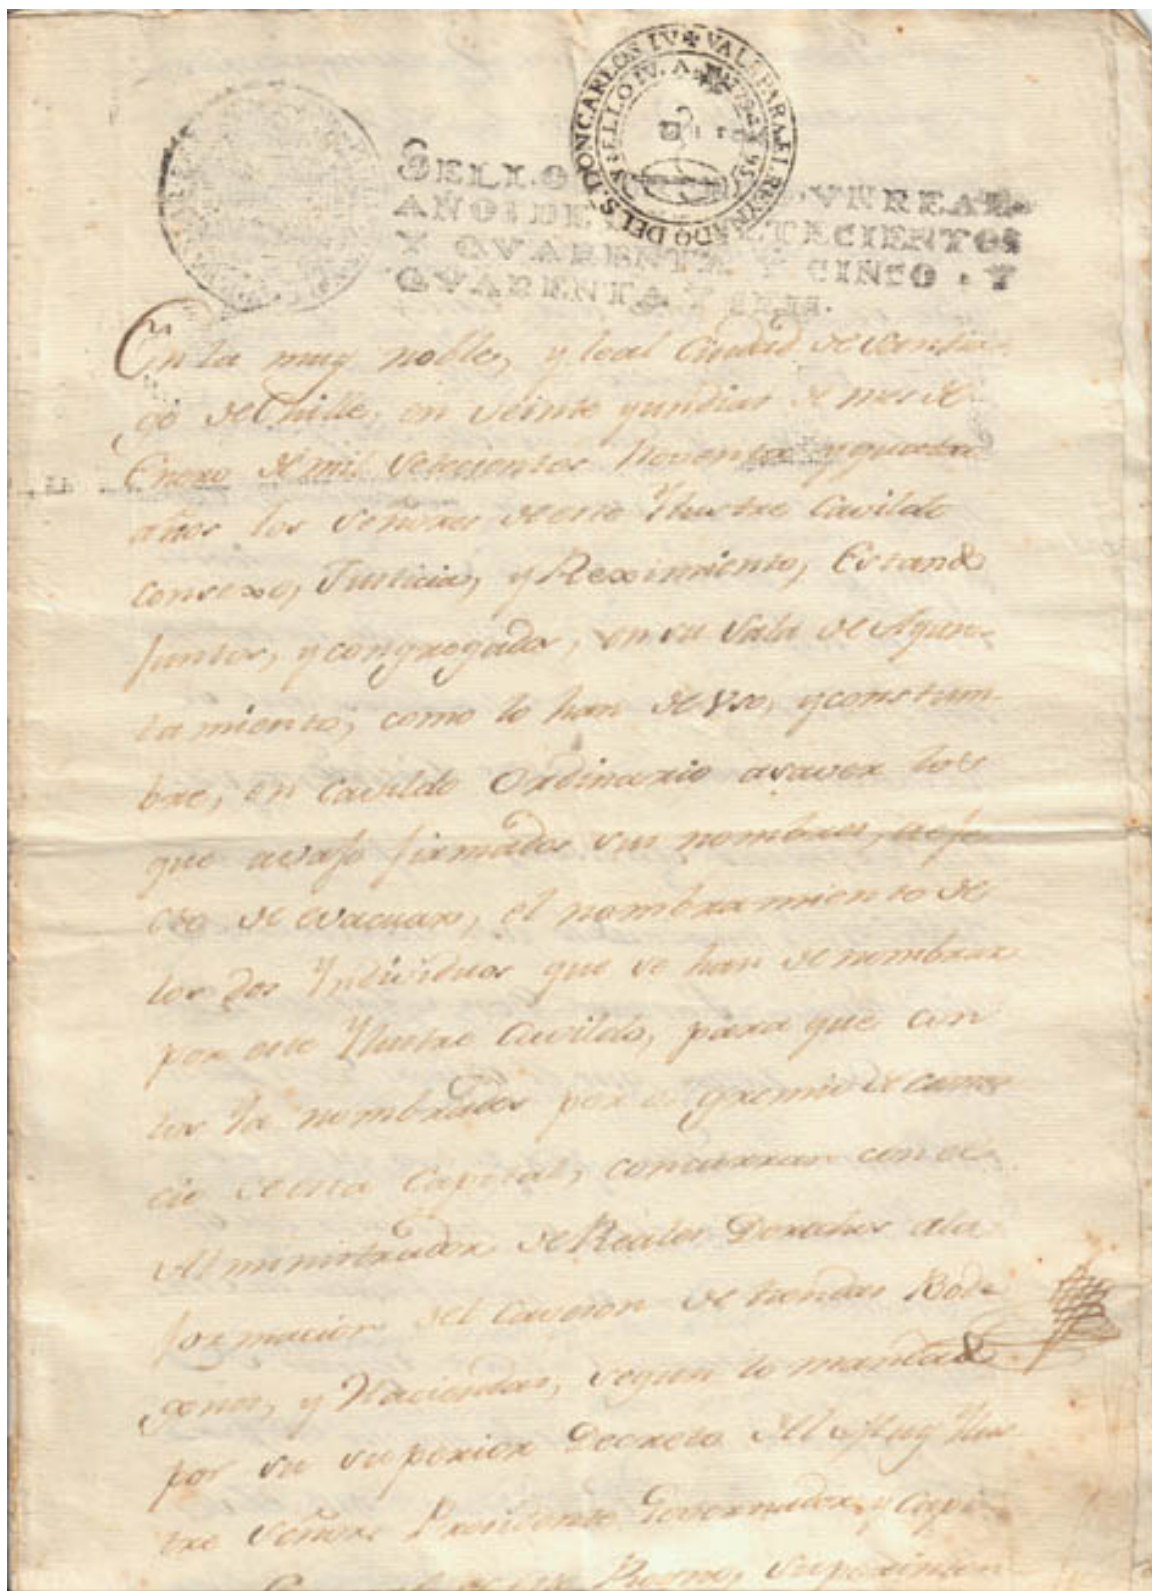 VALE PARA EL REYNADO DEL S. DON CARLOS IV
SELLO IV. A
SELLO VN REAL
AÑOS DE SETECIENTOS
Y QVARENTA Y CINCO, Y
QVARENTA Y SEIS.
En la muy noble, y leal Ciudad de Santia
go del Chille, en veinte y un dias de mes de
Enero de mil Setecientos Noventa y quatro
años los Señores de este Ylustre Cavildo
Consexo, Justicia, y Reximiento, Estando
Juntos, y congregados, en su Sala de Ayun
tamiento, como lo han de Vso, y constum
bre, en Cavildo Ordinario asaver los
que avajo firmados sus nombres, a efe
cto de evacuar, el nombramiento de
los dos Yndividuos que se han de nombrar
por este Ylustre Cavildo, para que con
los Ya nombrados por el gremio de comer
cio de esta Capital, concurran con el
Alministrador de Reales Derechos a la
formacion del de tiendas Bode
gones, y Haciendas, segun lo mandado
por su superior Decreto del Muy Ylus
tre Señor Presidente Governador, y Capi
Reyno, Superinten